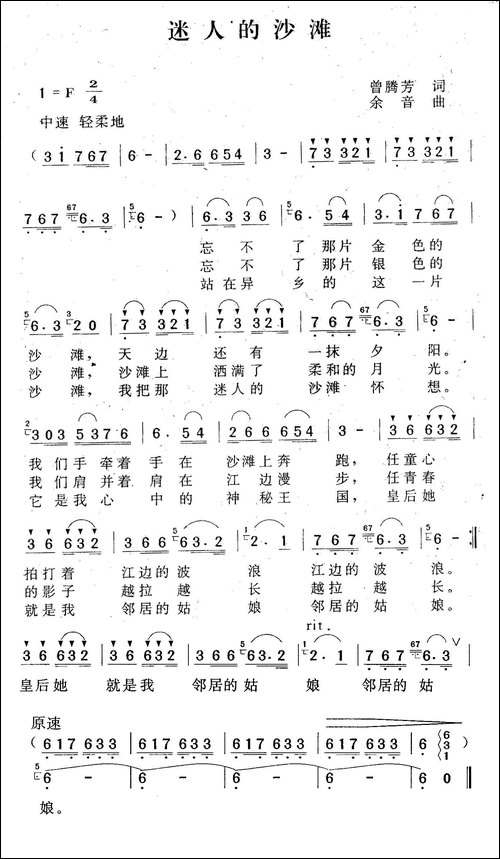 迷人的沙滩
1=F 2/4
曾腾芳 词
余音 曲
中速 轻柔地
(3 i 7 6 7 | 6 - | 2. 6 6 5 4 | 3 - | 7 3 3 2 1 | 7 3 3 2 1 |
7 6 7 67 6. 3 | 5 6 - ) | 6. 3 3 6 | 5 6. 5 4 | 3. 1 7 6 7 |
忘 不 了 那片 金 色的
忘 不 了 那片 银 色的
站在异 乡的 这 一片
5 6. 3 3 2 0 | 7 3 3 2 1 | 7 3 3 2 1 | 7 6 7 67 6. 3 | 5 6 - |
沙 滩， 天 边 还 有 一抹 夕 阳。
沙 滩， 沙滩上 洒满了 柔和的 月 光。
沙 滩， 我把那 迷人的 沙滩 怀 想。
2 3 0 3 5 3 7 6 | 6. 5 4 | 2 6 6 6 5 4 | 3 - | 3 6 6 3 2 |
我 们手 牵着 手 在 沙滩上奔 跑， 任童心
我 们肩 并着 肩 在 江 边漫 步， 任青春
它 是我 心 中 的 神 秘王 国， 皇后她
3 6 6 3 2 | 3 6 6 5 6 3. 2 | 1 2. 1 | 7 6 7 67 6. 3 | 5 6 - :||
拍打着 江边的波 浪 江边的 波 浪。
的影子 越拉 越 长 越拉 越 长。
就是我 邻居的姑 娘 邻居的 姑 娘。
rit.
3 6 6 3 2 | 3 6 6 3 2 | 3 6 6 5 6 3. 2 | 1 2. 1 | 7 6 7 67 6. 3 ∨ |
皇后她 就是我 邻居的姑 娘 邻居的 姑
原速
( 6 1 7 6 3 3 | 6 1 7 6 3 3 | 6 1 7 6 3 3 | 6 1 7 6 3 3 | 6 6 3 1 )
5 6 - | 6 - | 6 - | 6 - | 6 0 ||
娘。